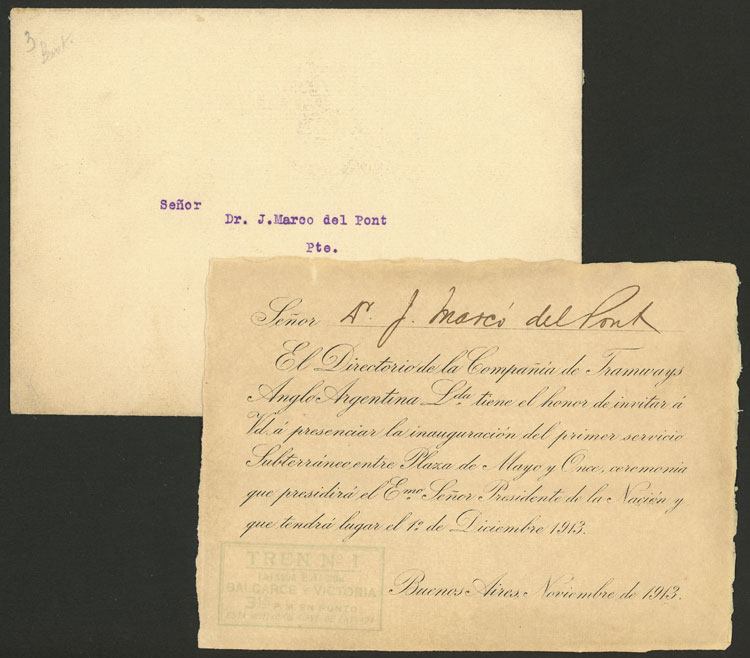 3
Señor
Dr. J.Marco del Pont
Pte.
Señor Dr. J. Marcó del Pont
El Directorio de la Compañía de Tramways
Anglo Argentina Lda. tiene el honor de invitar á
Vd. á presenciar la inauguración del primer servicio
Subterráneo entre Plaza de Mayo y Once, ceremonia
que presidirá el Emo. Señor Presidente de la Nación y
que tendrá lugar el 1o. de Diciembre 1913.
Buenos Aires, Noviembre de 1913.
TREN No. 1
BALCARCE Y VICTORIA
P.M. EN PUNTO